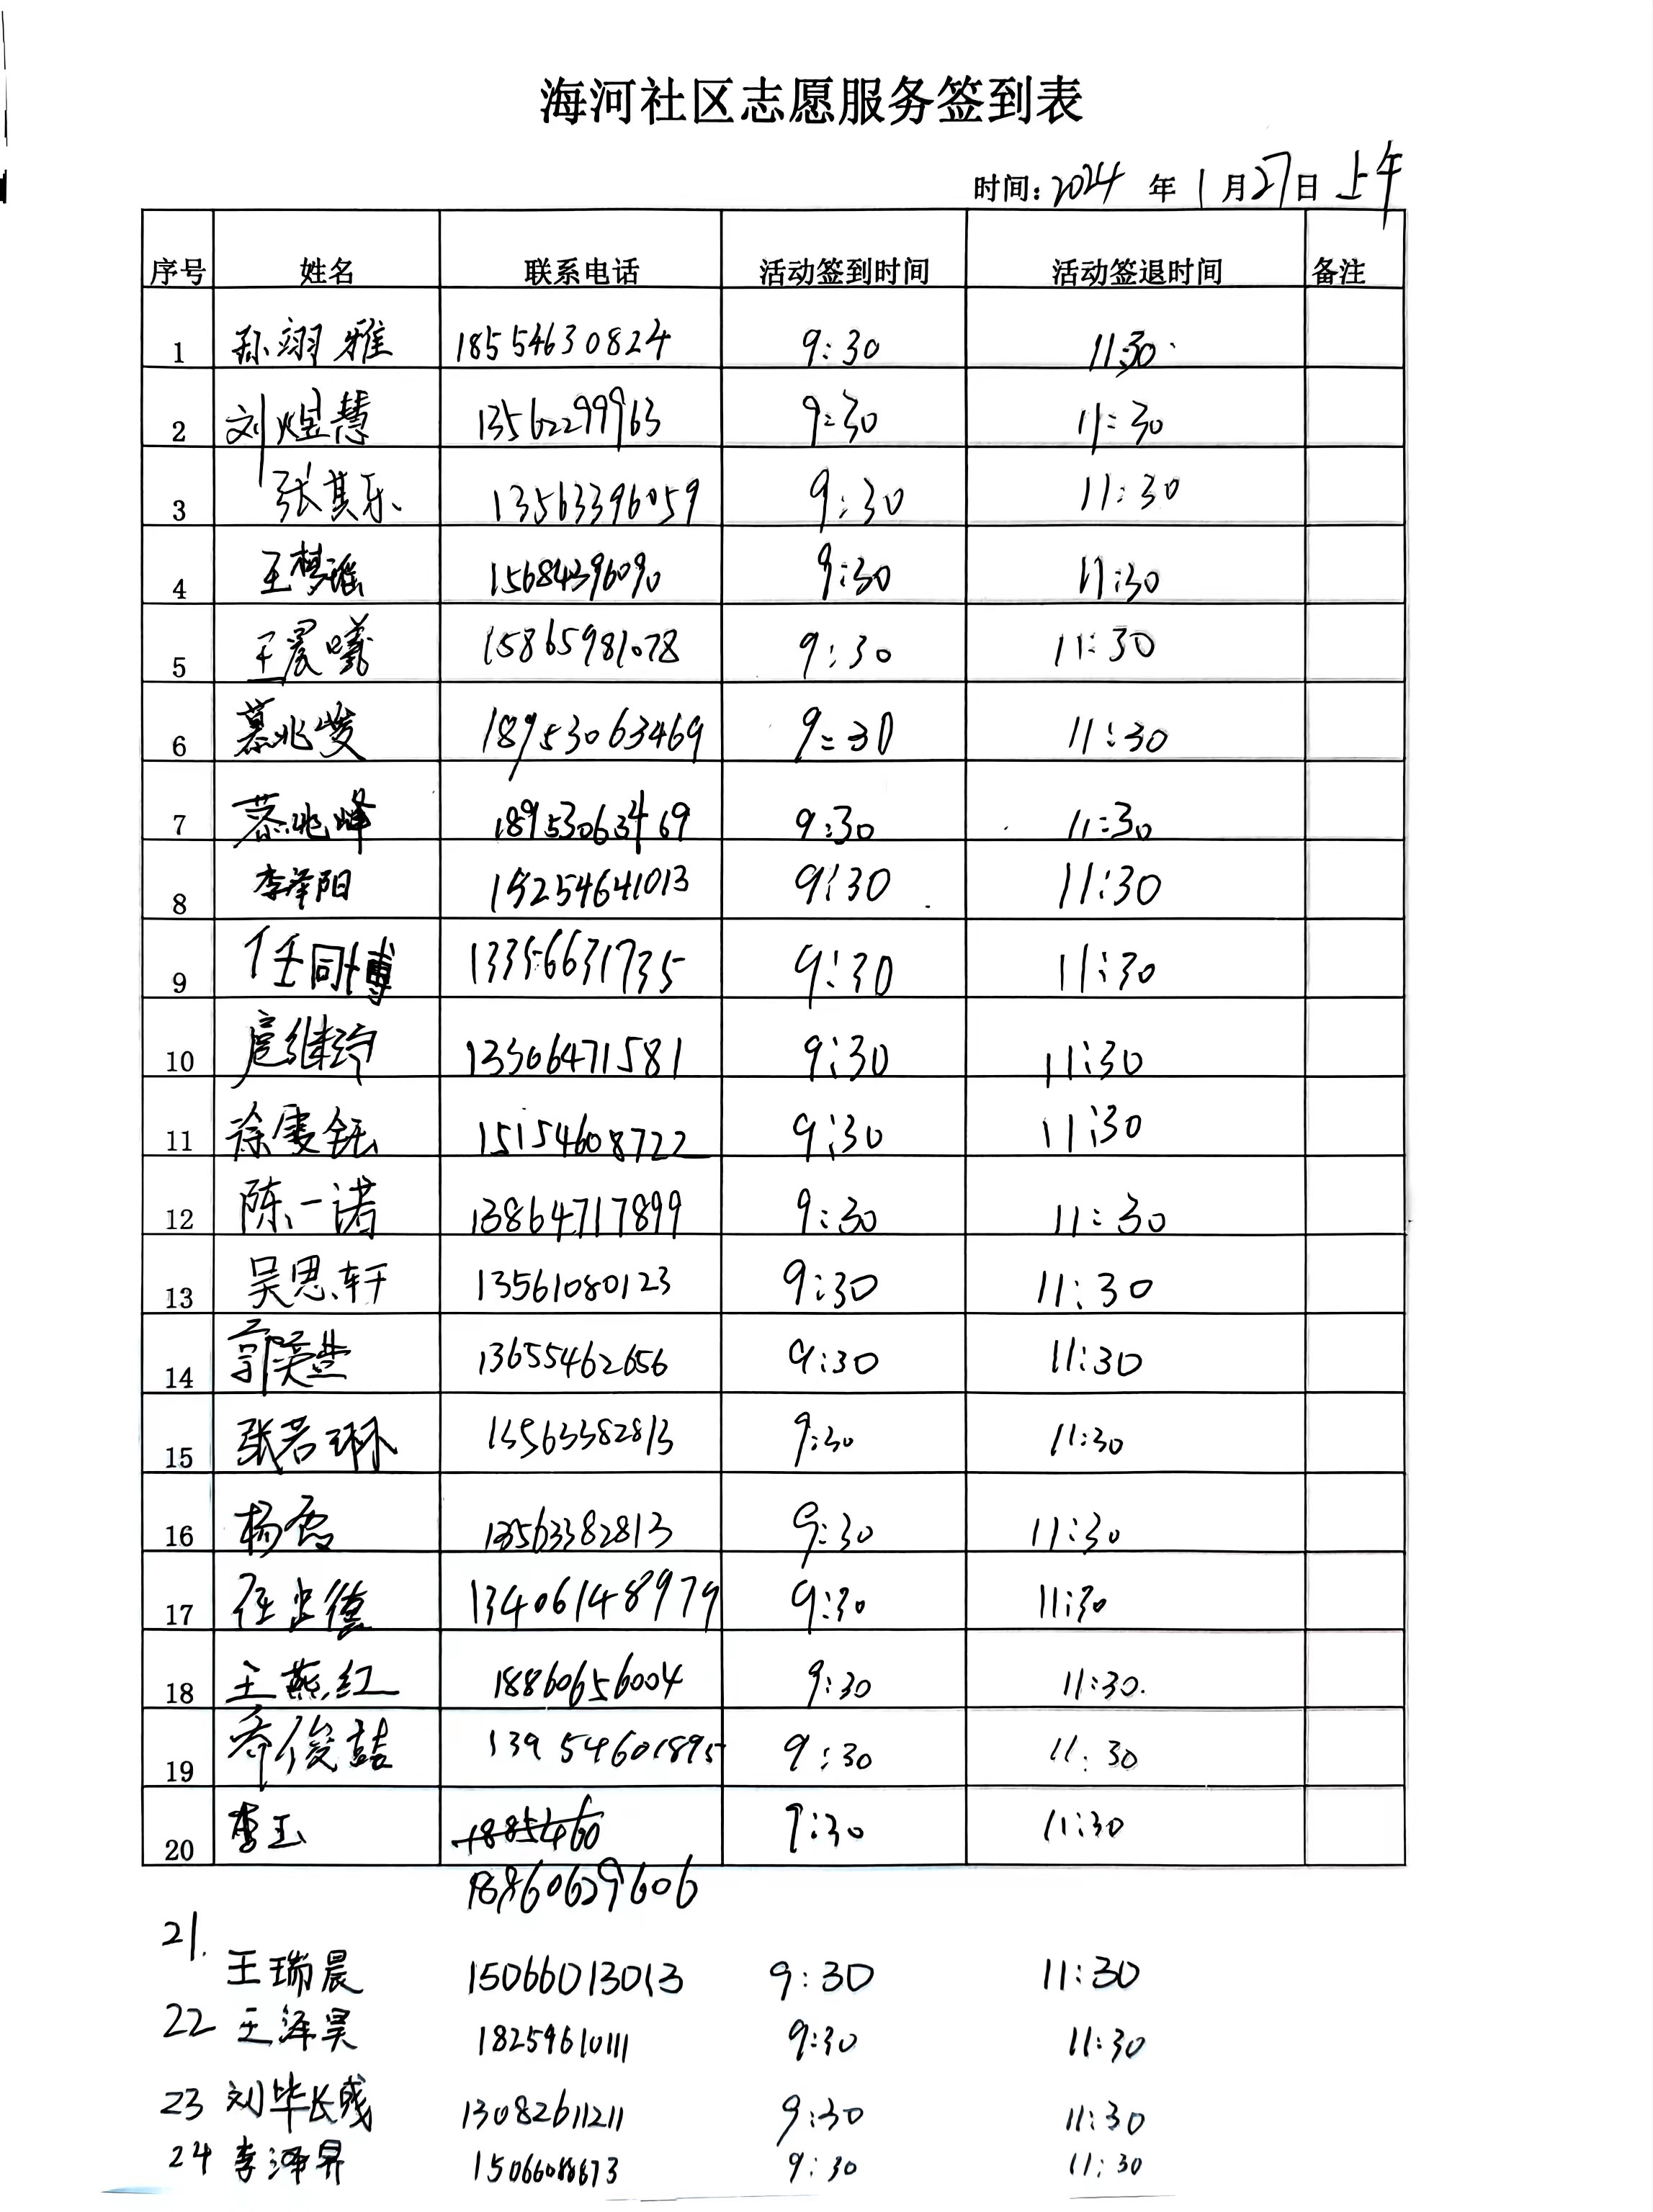 海河社区志愿服务签到表
时间：2024 年 1 月 27 日 上午
序号 姓名 联系电话 活动签到时间 活动签退时间 备注
1 孙翊雅 18554630824 9:30 11:30
2 刘煜慧 13562299963 9:30 11:30
3 张其乐 13563396059 9:30 11:30
4 王梦瑶 15684396090 9:30 11:30
5 王晨曦 15865981078 9:30 11:30
6 慕兆峻 18953063469 9:30 11:30
7 慕兆峰 18953063469 9:30 11:30
8 李泽阳 15254641013 9:30 11:30
9 任同博 13356631735 9:30 11:30
10 扈继 13306471581 9:30 11:30
11 徐雯钰 15154608722 9:30 11:30
12 陈一诺 13864717899 9:30 11:30
13 吴思轩 13561080123 9:30 11:30
14 郭 13655462656 9:30 11:30
15 张若琳 13563382813 9:30 11:30
16 杨霞 13563382813 9:30 11:30
17 任忠德 13406148979 9:30 11:30
18 王燕红 18860656004 9:30 11:30
19 乔俊喆 13954601895 9:30 11:30
20 李玉 1885460 9:30 11:30
18860629606
21. 王瑞晨 15066013013 9:30 11:30
22 王泽昊 18254610111 9:30 11:30
23 刘毕长彧 13082611211 9:30 11:30
24 李泽昇 9:30 11:30